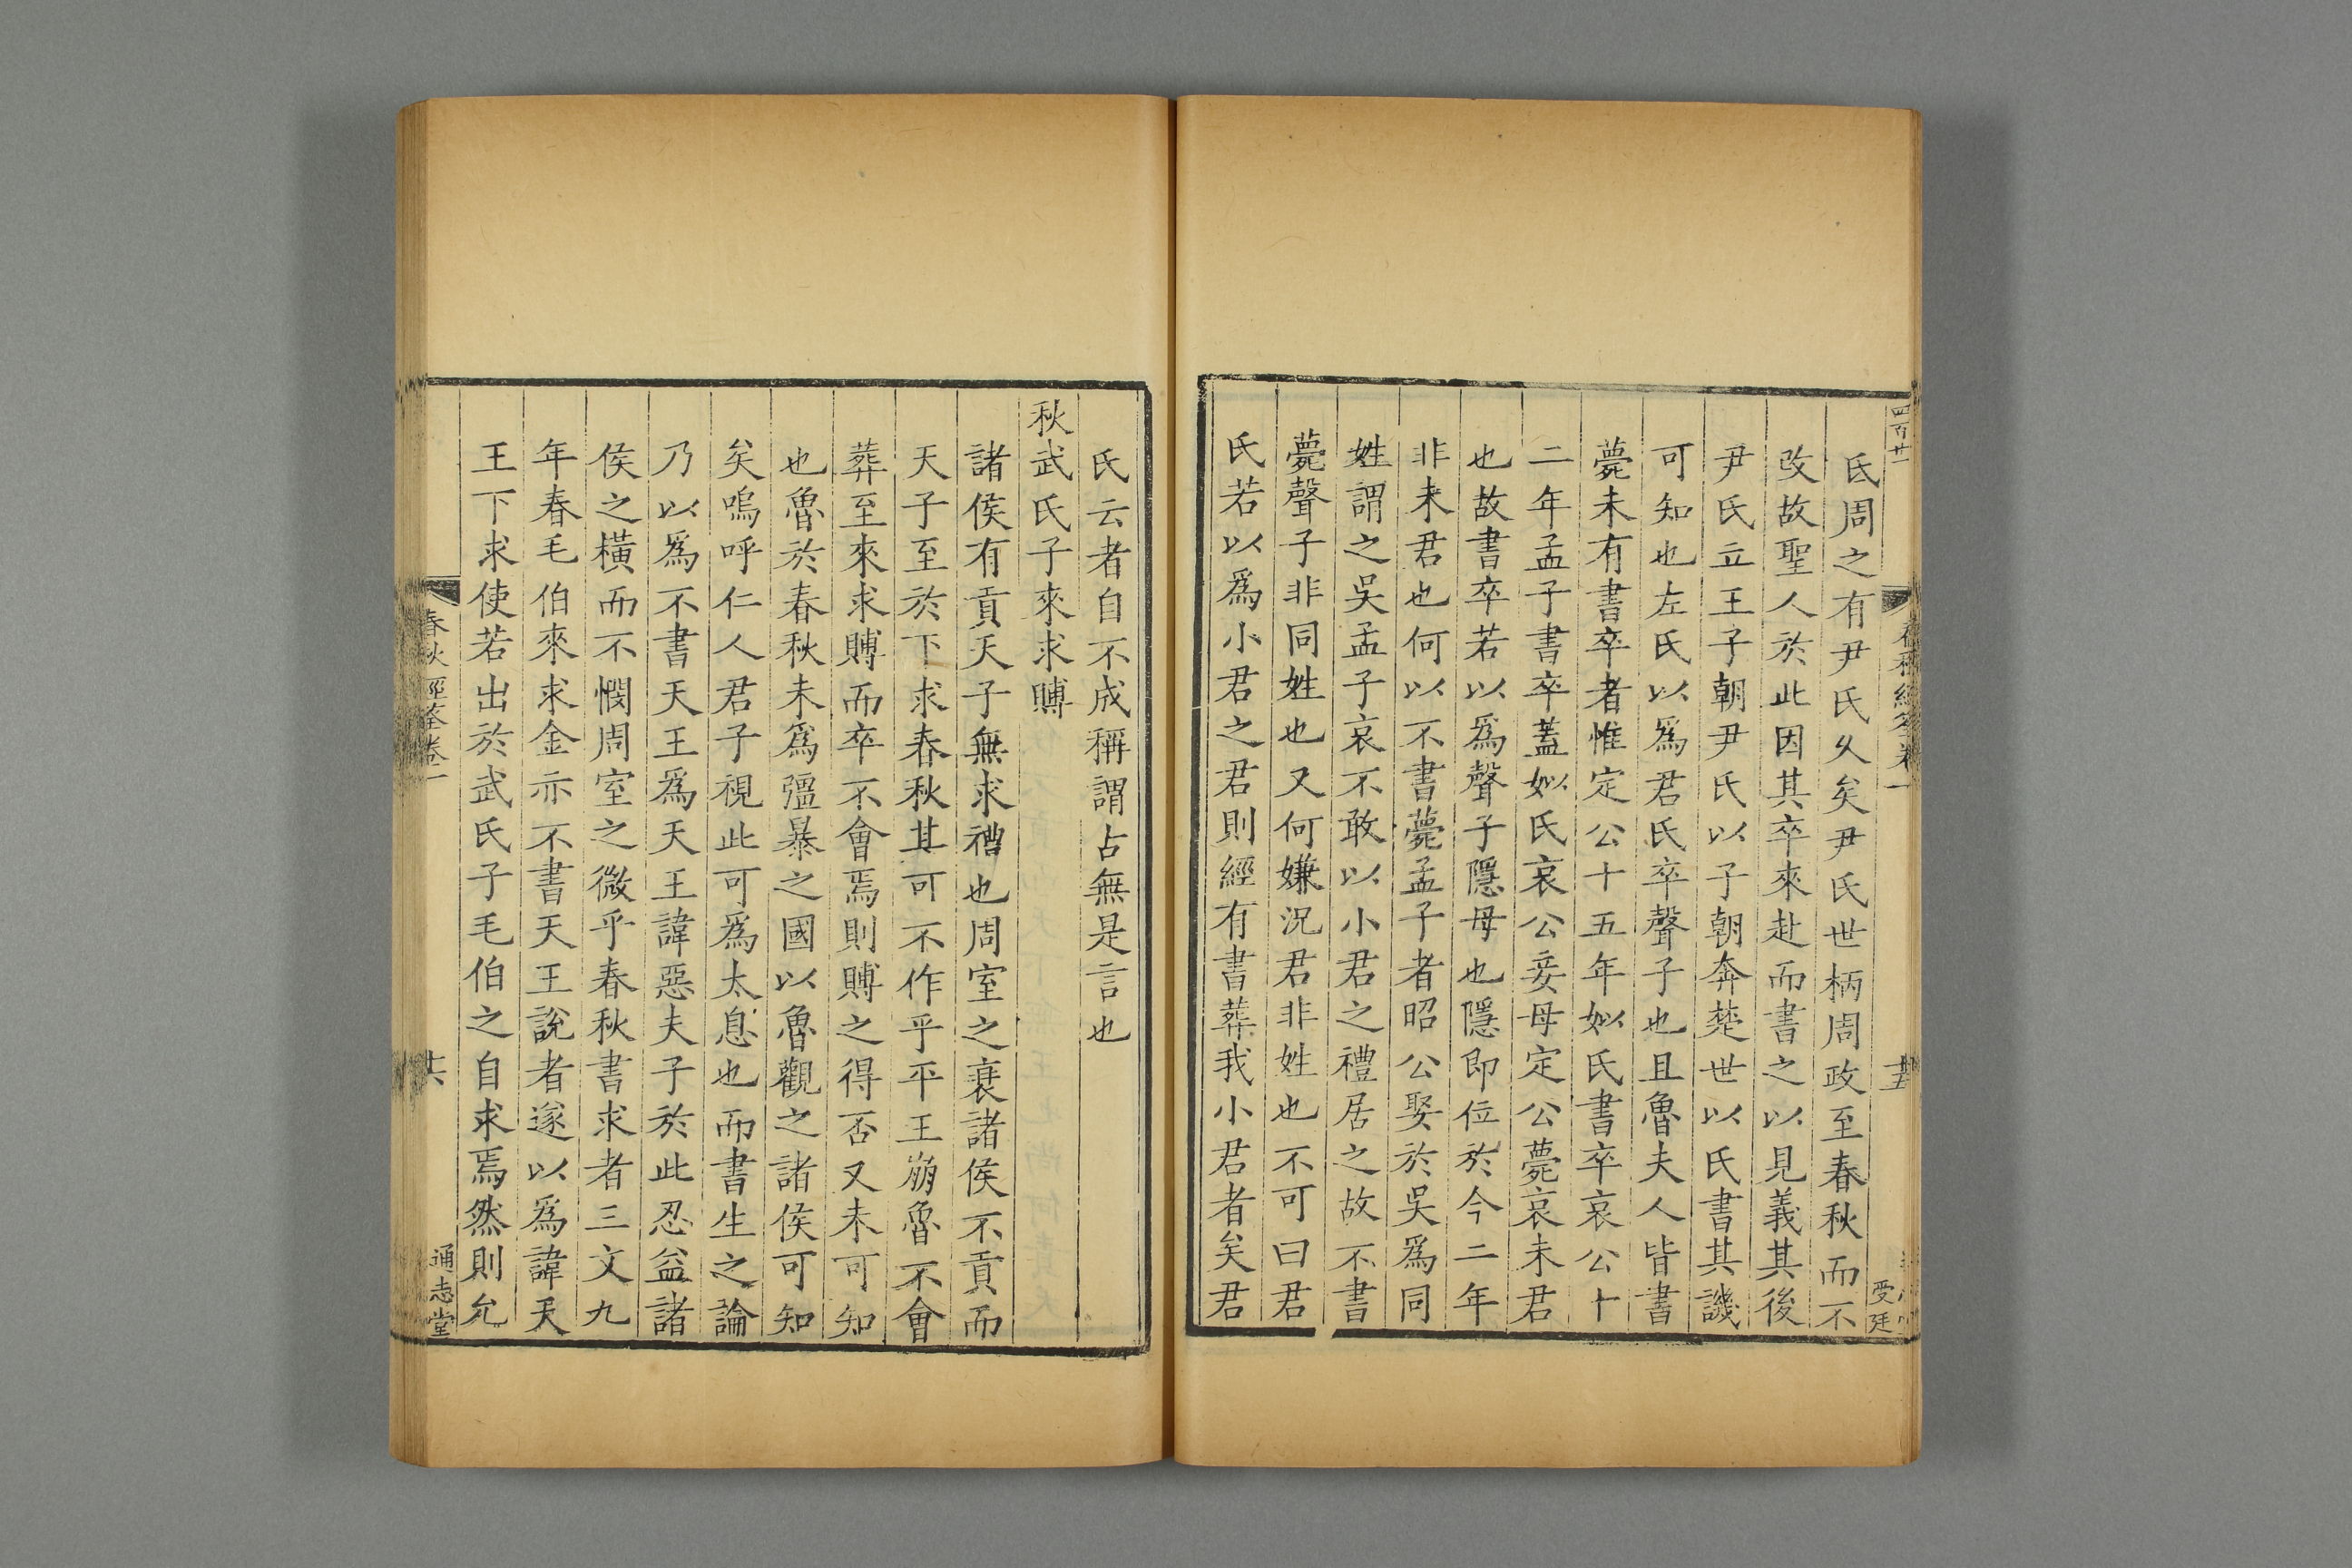 四百廿一
春秋經筌卷一
十五
受廷
氏周之有尹氏久矣尹氏世柄周政至春秋而不
改故聖人於此因其卒來赴而書之以見義其後
尹氏立王子朝尹氏以子朝奔楚世以氏書其譏
可知也左氏以爲君氏卒聲子也且魯夫人皆書
薨未有書卒者惟定公十五年姒氏書卒哀公十
二年孟子書卒蓋姒氏哀公妾母定公薨哀未君
也故書卒若以爲聲子隱母也隱即位於今二年
非未君也何以不書薨孟子者昭公娶於吳爲同
姓謂之吳孟子哀不敢以小君之禮居之故不書
薨聲子非同姓也又何嫌況君非姓也不可曰君
氏若以爲小君之君則經有書葬我小君者矣君
氏云者自不成稱謂占無是言也
秋武氏子來求賻
諸侯有貢天子無求禮也周室之衰諸侯不貢而
天子至於下求春秋其可不作乎平王崩魯不會
葬至來求賻而卒不會焉則賻之得否又未可知
也魯於春秋未爲彊暴之國以魯觀之諸侯可知
矣嗚呼仁人君子視此可爲太息也而書生之論
乃以爲不書天王爲天王諱惡夫子於此忍益諸
侯之橫而不憫周室之微乎春秋書求者三文九
年春毛伯來求金亦不書天王說者遂以爲諱天
王下求使若出於武氏子毛伯之自求焉然則允
春秋經筌卷一
十六
通志堂